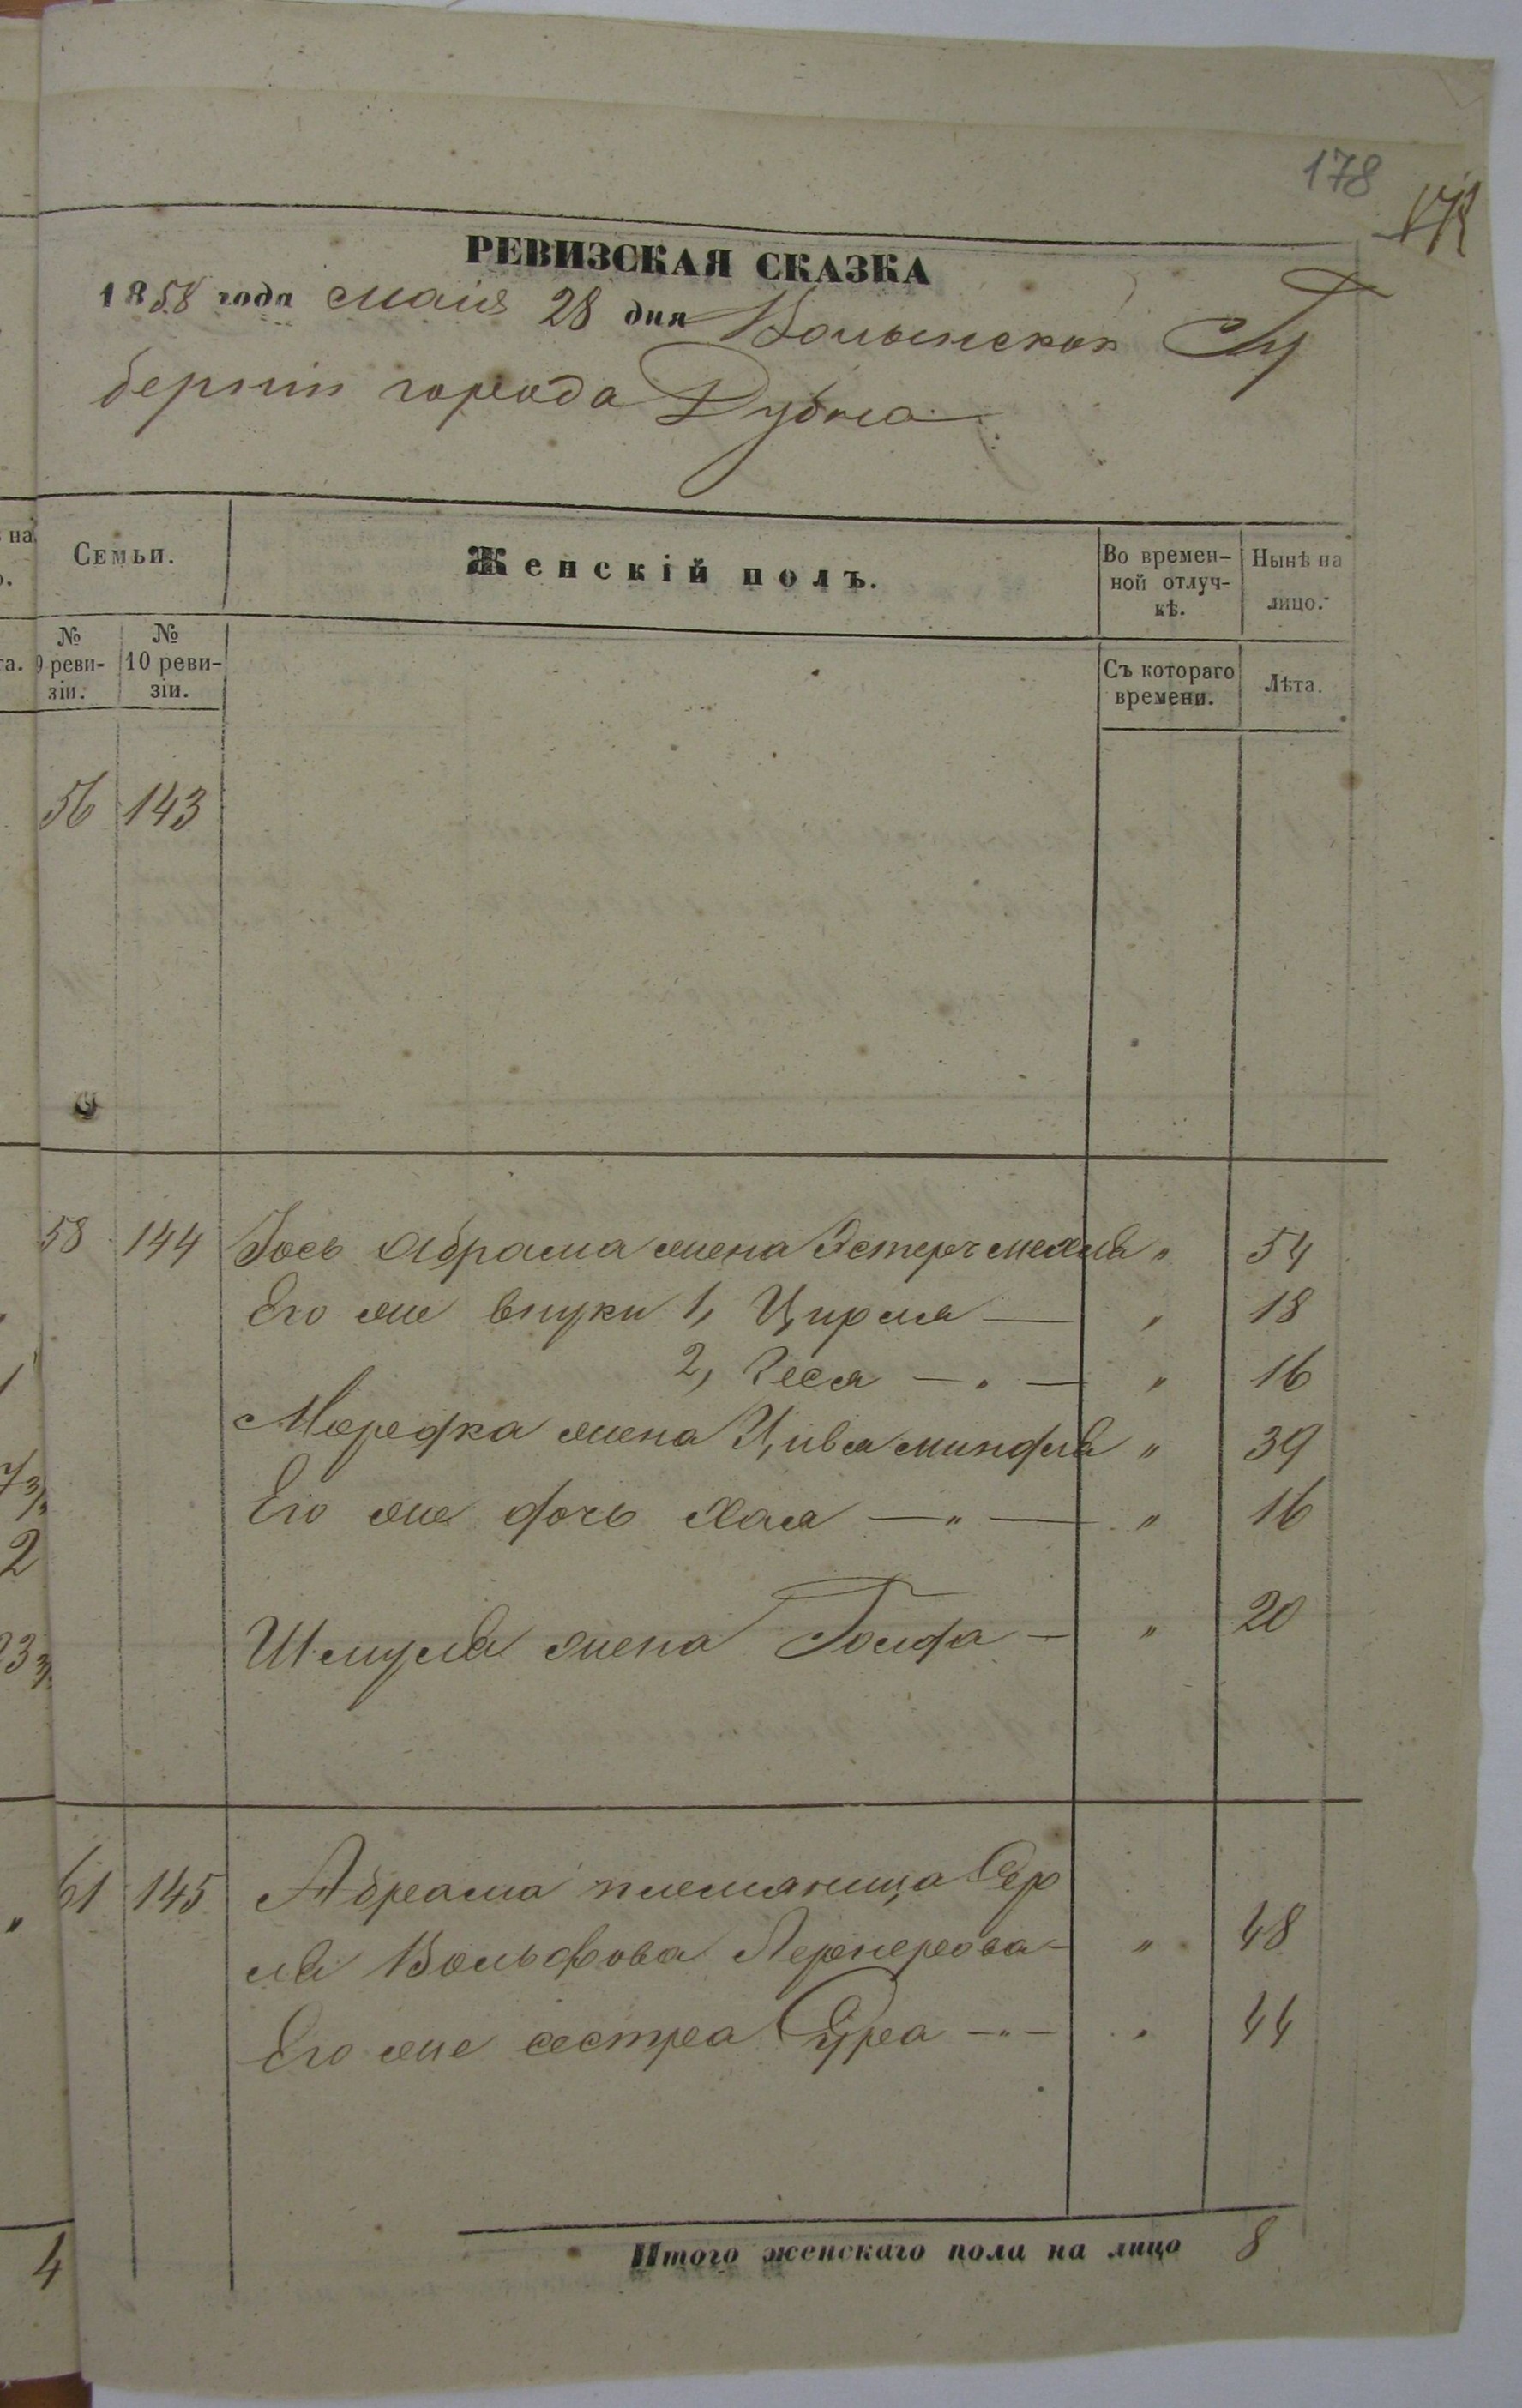 178
РЕВИЗСКАЯ СКАЗКА
1858 года маія 28 дня Волынской Гу
берніи города Дубна
на
Семьи.
Женскій полъ.
Во времен-
ной отлуч-
кѣ.
Нынѣ на
лицо.
№
9 реви-
зіи.
№
10 реви-
зіи.
Съ котораго
времени.
Лѣта.
56 143
58 144 Іось Абрама жена Эстеръ " 54
Его же внуки 1, Цирля — " 18
2, Геся — " — " 16
Мордка жена Цивя Миндля " 39
Его же дочь Хая — " — " 16
Шмуля жена Голда — " 20
61 145 Абрама племяница Пер
ля Вольфова Лернерова — " 48
Его же сестра Сура — " — " 44
Итого женскаго пола на лицо 8
4